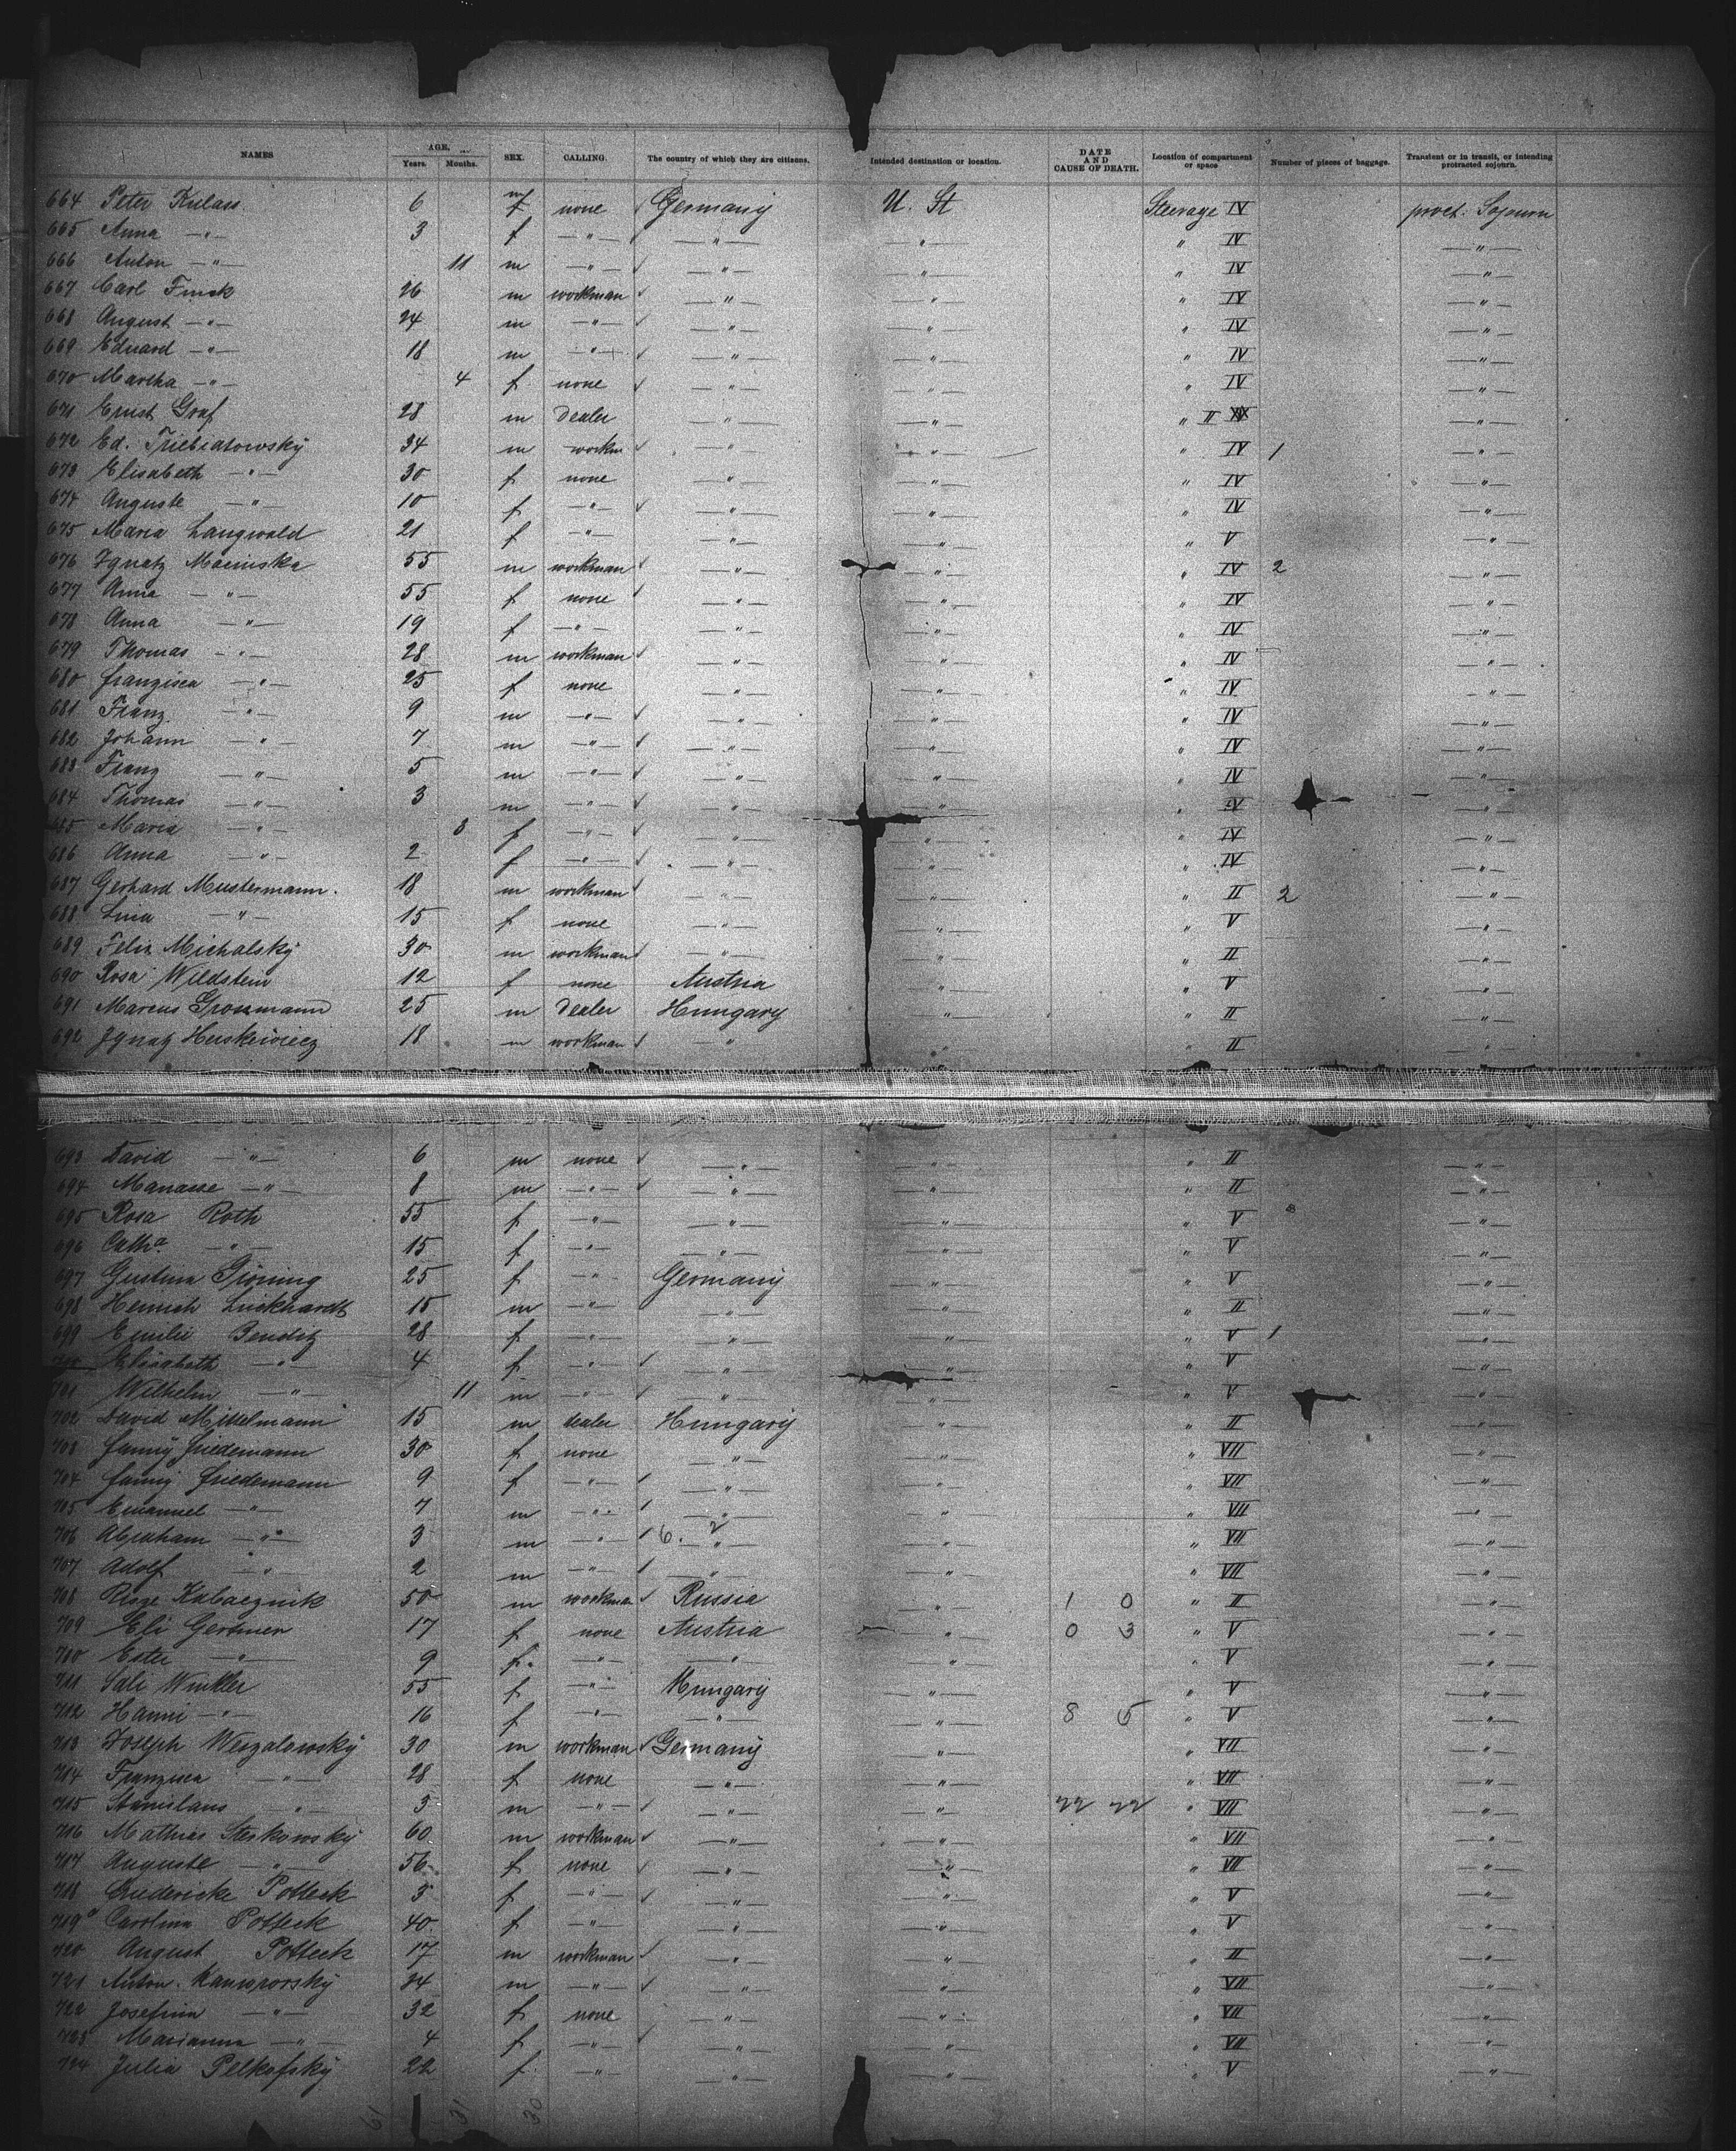 NAMES AGE. Years. Months. SEX. CALLING. The country of which they are citizens. Intended destination or location. DATE AND CAUSE OF DEATH. Location of compartment or space Number of pieces of baggage. Transient or in transit, or intending protracted sojourn.
664 Peter Kulass 6 m f none Germany U. St Steerage IV prot. Sojourn
665 Anna —"— 3 f —"— —"— —"— " IV —"—
666 Anton —"— 11 m —"— —"— —"— " IV —"—
667 Carl Finsk 26 m workman —"— " IV —"—
668 August —"— 24 m —"— —"— —"— " IV —"—
669 Eduard —"— 18 m —"— —"— —"— " IV —"—
670 Martha —"— 4 f none —"— —"— " IV —"—
671 Ernst Graf 28 m Dealer —"— —"— " II —"—
672 Ed. Triebiatowsky 34 m workm —"— —"— " IV 1 —"—
673 Elisabeth —"— 30 f none —"— —"— " IV —"—
674 Auguste —"— 10 f —"— —"— —"— " IV —"—
675 Maria Langwald 21 f —"— —"— —"— " V —"—
676 Ignatz 55 m workman —"— —"— " IV 2 —"—
677 Anna —"— 55 f none —"— —"— " IV —"—
678 Anna —"— 19 f —"— —"— —"— " IV —"—
679 Thomas —"— 28 m workman —"— —"— " IV —"—
680 Franzisca —"— 25 f none —"— —"— " IV —"—
681 Franz —"— 9 m —"— —"— —"— " IV —"—
682 Johann —"— 7 m —"— —"— —"— " IV —"—
683 Franz —"— 5 m —"— —"— —"— " IV —"—
684 Thomas —"— 3 m —"— —"— —"— " IV —"—
685 Maria —"— 8 f —"— —"— —"— " IV —"—
686 Anna —"— 2 f —"— —"— —"— " IV —"—
687 Gerhard Mustermann. 18 m workman —"— —"— " II 2 —"—
688 Lina —"— 15 f none —"— —"— " V —"—
689 Felix Michalsky 30 m workman —"— —"— " II —"—
690 Rosa Wildstein 12 f none Austria —"— " V —"—
691 Marcus Grossmann 25 m Dealer Hungary —"— " II —"—
692 Ignatz 18 m workman " —"— " II —"—
693 David —"— 6 m none —"— —"— " II —"—
694 Manasse —"— 8 m —"— —"— —"— " II —"—
695 Rosa Roth 55 f —"— —"— —"— " V —"—
696 Catha —"— 15 f —"— —"— —"— " V —"—
697 25 f —"— Germany —"— " V —"—
698 Heinrich Luckhardt 15 m —"— —"— —"— " II —"—
699 Emilie 28 f —"— —"— —"— " V 1 —"—
700 Elisabeth —"— 4 f —"— —"— —"— " V —"—
701 Wilhelm —"— 11 m —"— —"— —"— " V —"—
702 David Mittelmann 15 m dealer Hungary —"— " II —"—
703 Fanny Friedemann 30 f none —"— —"— " VII —"—
704 Fanny Friedemann 9 f —"— —"— —"— " VII —"—
705 Emanuel —"— 7 m —"— —"— —"— " VII —"—
706 Abraham —"— 3 m —"— 6. 2 —"— —"— " VII —"—
707 Adolf —"— 2 m —"— —"— —"— " VII —"—
708 Kabacznik 50 m workman Russia —"— 1 0 " II —"—
709 Eli Gertner 17 f none Austria —"— 0 3 " V —"—
710 Ester —"— 9 f. —"— —"— —"— " V —"—
711 Sali Winkler 55 f —"— Hungary —"— " V —"—
712 Hanni —"— 16 f —"— —"— —"— 8 5 " V —"—
713 Joseph 30 m workman Germany —"— " VII —"—
714 Franzisca —"— 28 f none —"— —"— " VII —"—
715 Stanislaus —"— 3 m —"— —"— —"— 22 22 " VII —"—
716 Mathias 60 m workman —"— —"— " VII —"—
717 Auguste —"— 56 f none —"— —"— " VII —"—
718 Friedericke Potteck 5 f —"— —"— —"— " V —"—
719 Carolina Potteck 40 f —"— —"— —"— " V —"—
720 August Potteck 17 m workman —"— —"— " II —"—
721 Anton 34 m —"— —"— —"— " VII —"—
722 Josefina —"— 32 f none —"— —"— " VII —"—
723 Marianna —"— 4 f —"— —"— —"— " VII —"—
724 Julia Pelkofsky 22 f —"— —"— —"— " V —"—
61 31 30